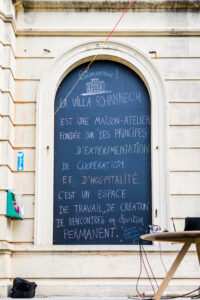 Bienvenue !
LA VILLA ROHANNECH
EST UNE MAISON-ATELIER
FONDÉE SUR LES PRINCIPES
D'EXPÉRIMENTATION
DE COOPÉRATION
ET D'HOSPITALITÉ.
C'EST UN ESPACE
DE TRAVAIL, DE CRÉATION
DE RENCONTRES en Question
PERMANENT.